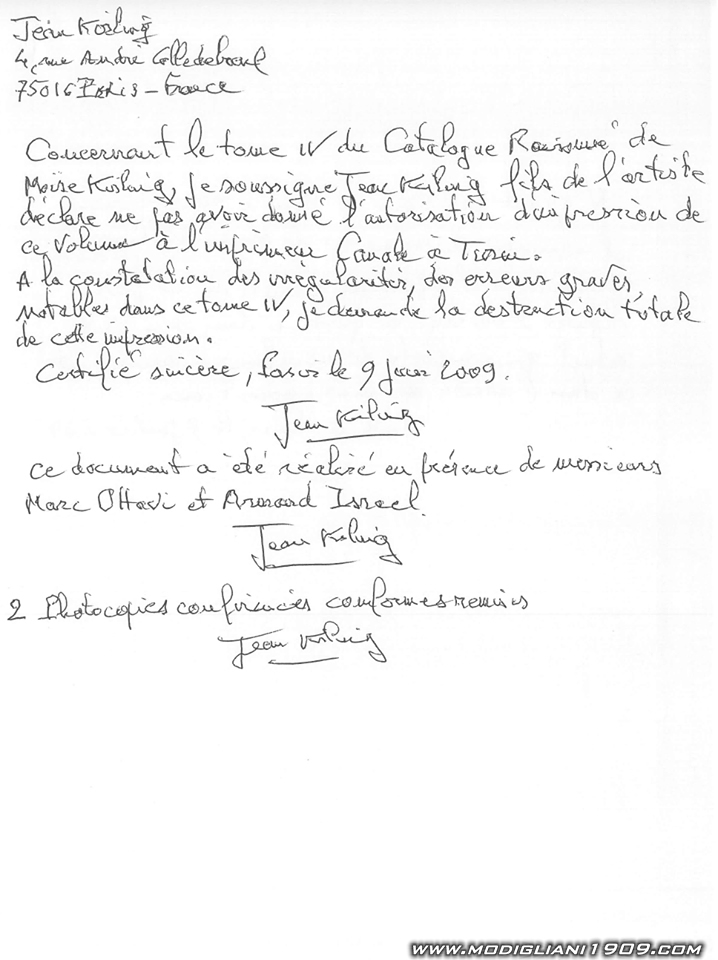 Jean Kisling
4, rue André Colledeboeuf
75016 Paris - France
Concernant le tome IV du Catalogue Raisonné de
Moïse Kisling, je soussigné Jean Kisling fils de l'artiste
déclare ne pas avoir donné l'autorisation d'impression de
ce volume à l'imprimeur Canale à Turin.
A la constatation des irrégularités, des erreurs graves,
notables dans ce tome IV, je demande la destruction totale
de cette impression.
Certifié sincère, le 9 2009.
Jean Kisling
Ce document a été réalisé en présence de messieurs
Marc Ottavi et Armand Israel.
Jean Kisling
2 Photocopies conformes remises
Jean Kisling
WWW.MODIGLIANI1909.COM